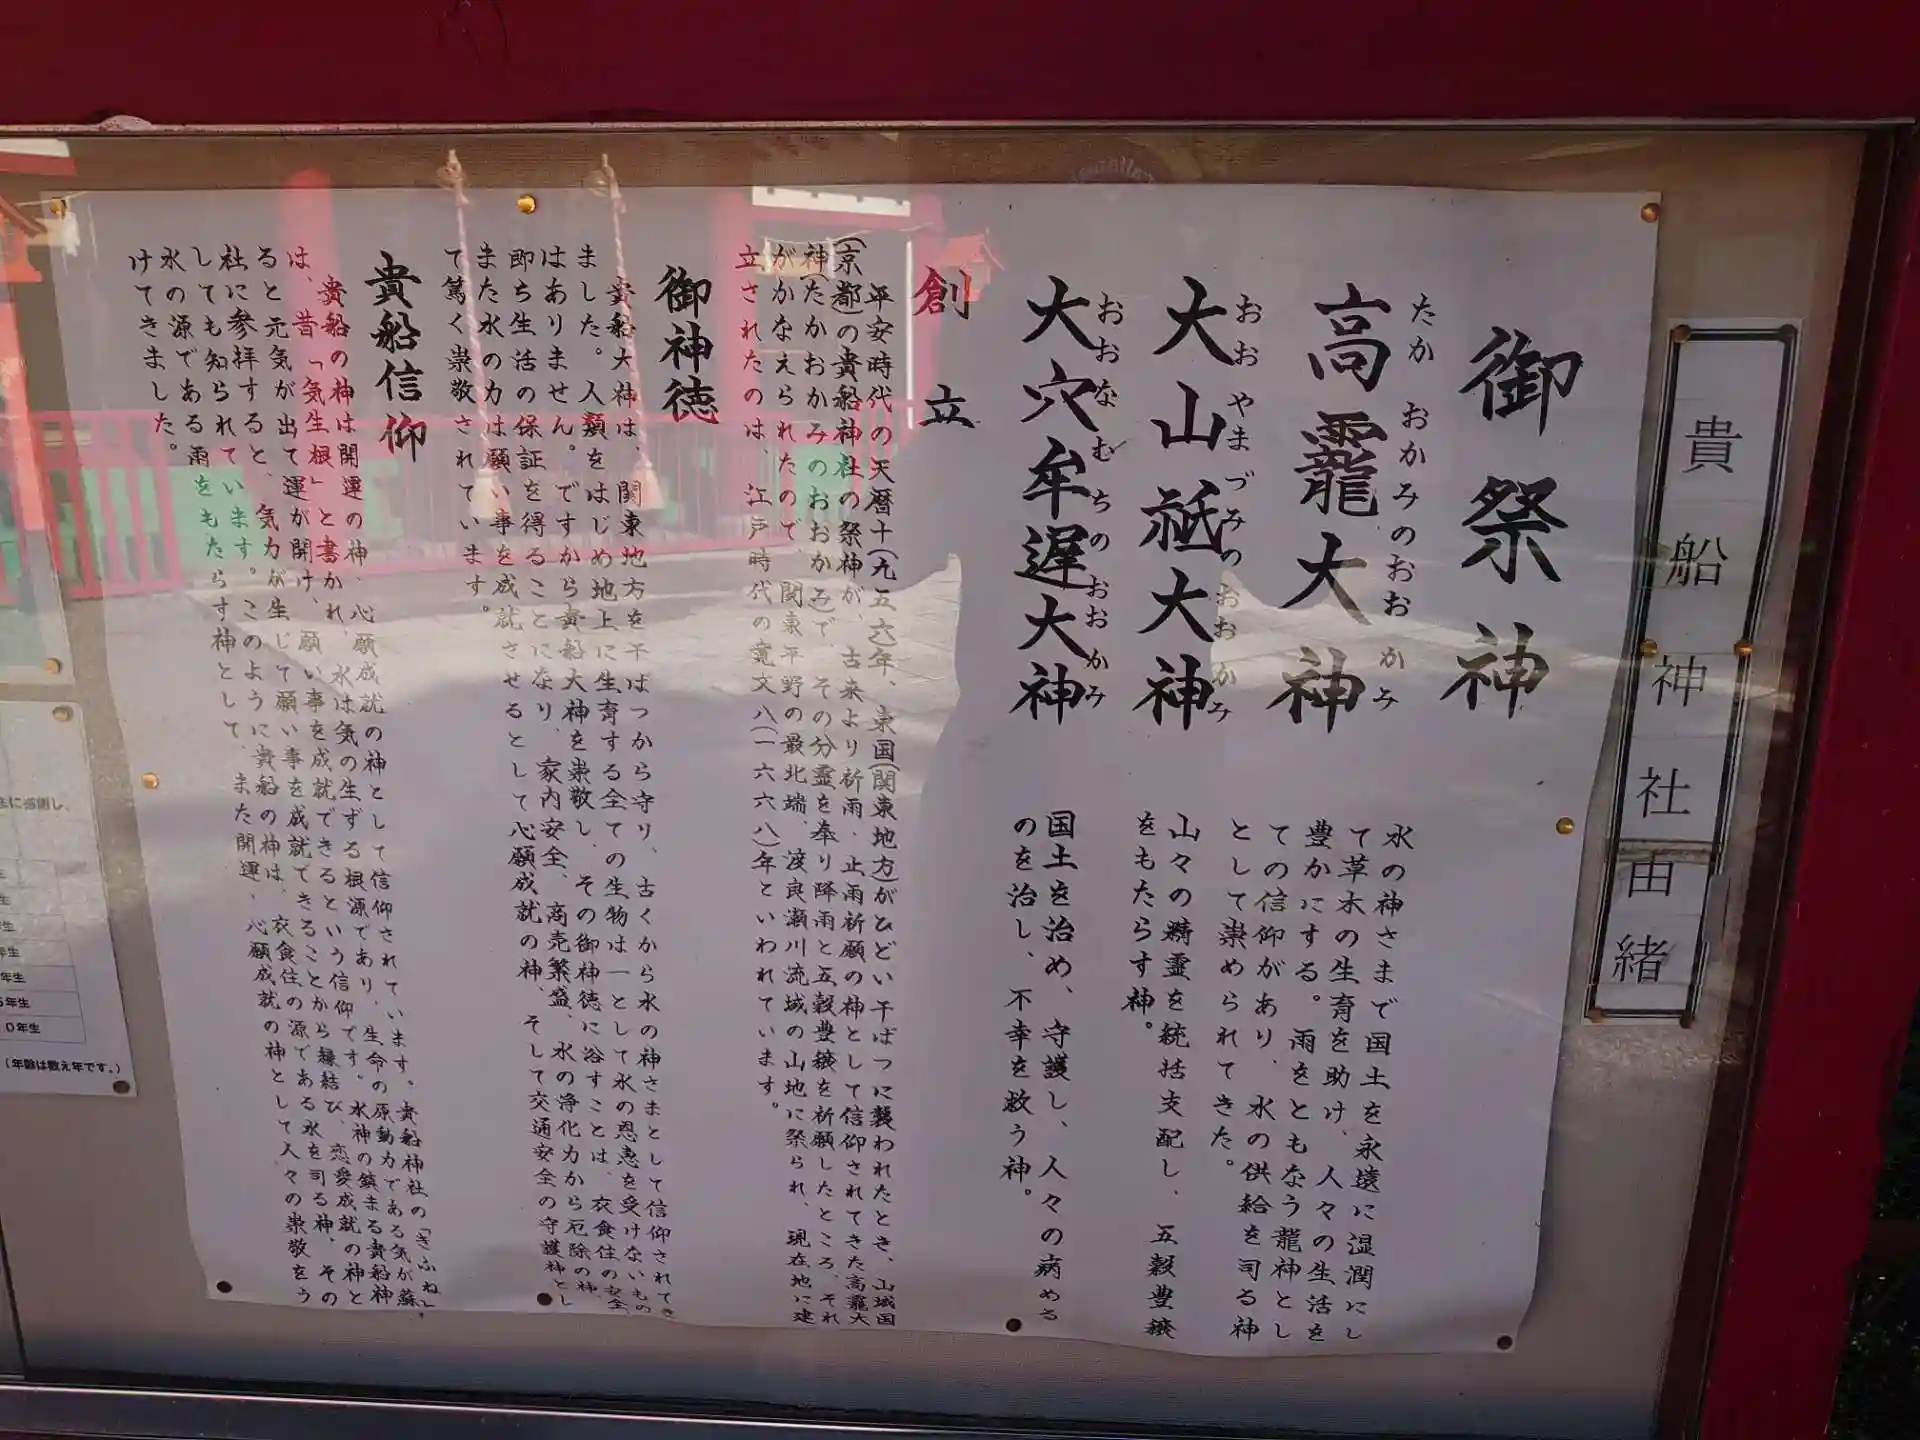 貴船神社由緒
御祭神
たか おかみのおおかみ
高龗大神
水の神さまで国土を永遠に湿潤にし
て草木の生育を助け、人々の生活を
豊かにする。雨をともなう龍神とし
ての信仰があり、水の供給を司る神
として崇められてきた。
おおやまづみのおおかみ
大山祇大神
山々の精霊を統括支配し、五穀豊穣
をもたらす神。
おおなむちのおおかみ
大穴牟遅大神
国土を治め、守護し、人々の病める
のを治し、不幸を救う神。
創立
平安時代の天暦十(九五六)年、東国(関東地方)がひどい干ばつに襲われたとき、山城国
(京都)の貴船神社の祭神が、古来より祈雨・止雨祈願の神として信仰されてきた高龗大
神(たかおかみのおおかみ)で、その分霊を奉り降雨と五穀豊穣を祈願したところ、それ
がかなえられたので、関東平野の最北端、渡良瀬川流域の山地に祭られ、現在地に建
立されたのは、江戸時代の寛文八(一六六八)年といわれています。
御神徳
貴船大神は、関東地方を干ばつから守り、古くから水の神さまとして信仰されてき
ました。人類をはじめ地上に生育する全ての生物は一として水の恩恵を受けないもの
はありません。ですから貴船大神を崇敬し、その御神徳に浴すことは、衣食住の安全、
即ち生活の保証を得ることになり、家内安全、商売繁盛、水の浄化力から厄除の神、
また水の力は願い事を成就させるとして心願成就の神、そして交通安全の守護神とし
て篤く崇敬されています。
貴船信仰
貴船の神は開運の神、心願成就の神として信仰されています。貴船神社の「きふね」
は、昔「気生根」と書かれ、水は気の生ずる根源であり、生命の原動力である気が蘇
ると元気が出て運が開け、願い事を成就できるという信仰です。水神の鎮まる貴船神
社に参拝すると、気力が生じて願い事を成就できることから縁結び、恋愛成就の神と
しても知られています。このように貴船の神は、衣食住の源である水を司る神、その
水の源である雨をもたらす神として、また開運・心願成就の神として人々の崇敬をう
けてきました。
生に感謝し、
年
生
年生
年生
年生
5年生
0年生
(年齢は数え年です。)